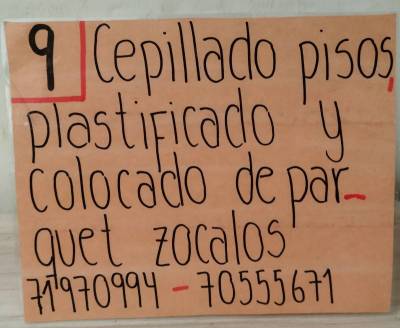 9 Cepillado pisos,
plastificado y
colocado de par-
quet zocalos
71970994 - 70555671